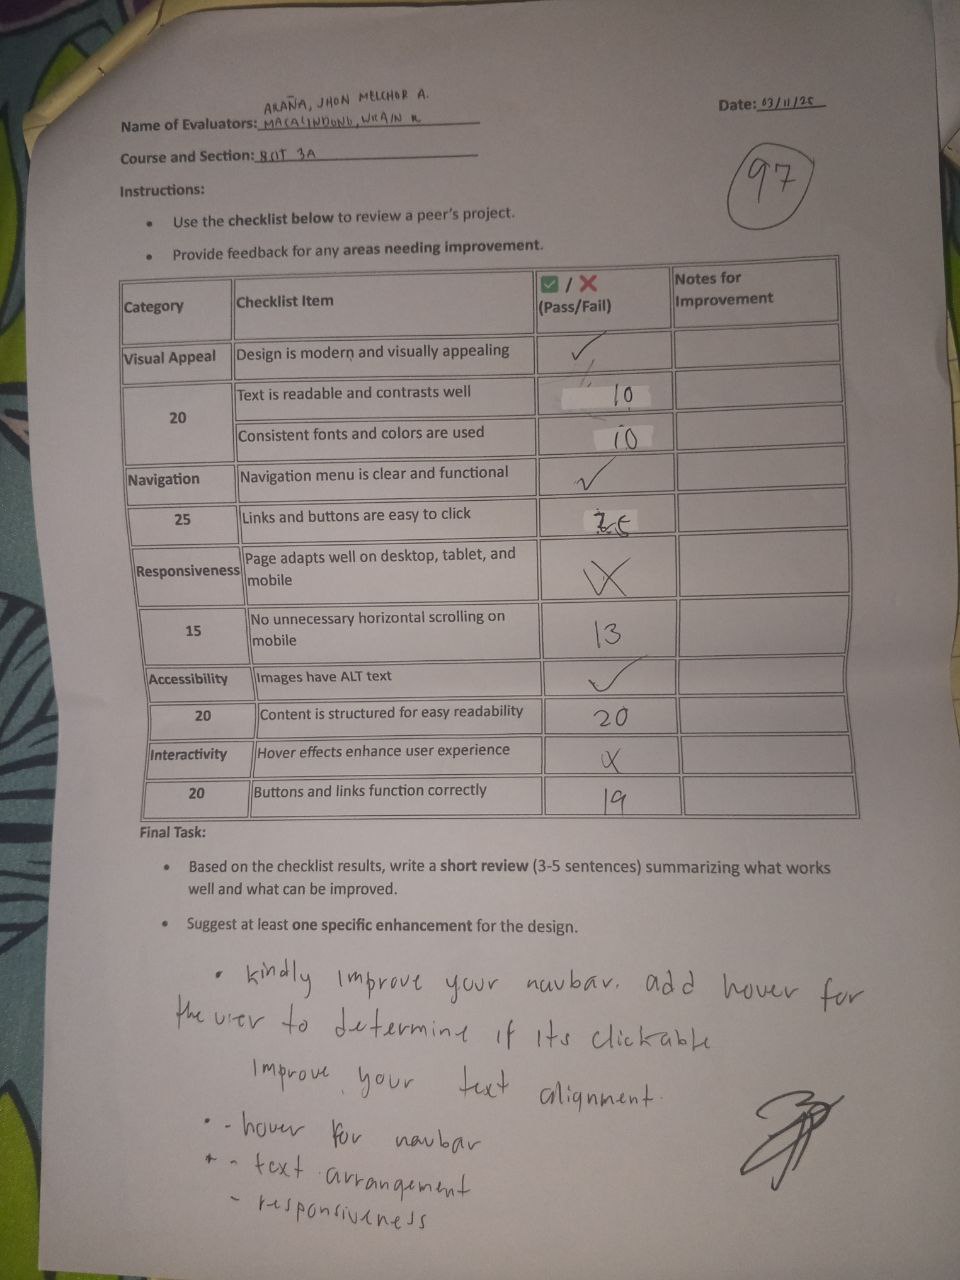 ARAÑA, JHON MELCHOR A.
Date: 03/11/25
Name of Evaluators: MACALINDONG, WRAIN R
Course and Section: BOT 3A
97
Instructions:
• Use the checklist below to review a peer's project.
• Provide feedback for any areas needing improvement.
Category Checklist Item ✅ / ❌ (Pass/Fail) Notes for Improvement
Visual Appeal Design is modern and visually appealing ✓
20 Text is readable and contrasts well 10
Consistent fonts and colors are used 10
Navigation Navigation menu is clear and functional ✓
25 Links and buttons are easy to click 25
Responsiveness Page adapts well on desktop, tablet, and mobile X
15 No unnecessary horizontal scrolling on mobile 13
Accessibility Images have ALT text ✓
20 Content is structured for easy readability 20
Interactivity Hover effects enhance user experience X
20 Buttons and links function correctly 19
Final Task:
• Based on the checklist results, write a short review (3-5 sentences) summarizing what works
well and what can be improved.
• Suggest at least one specific enhancement for the design.
• kindly improve your navbar. add hover for
the user to determine if its clickable
Improve your text alignment.
• - hover for navbar
- text arrangement
- responsiveness